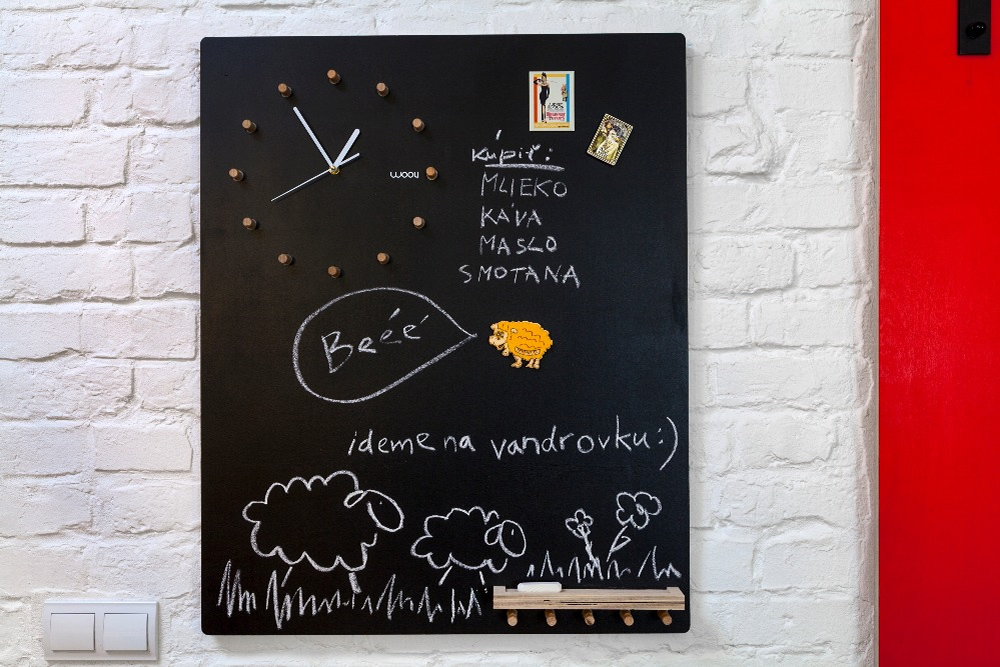 woou
Kúpiť:
MLIEKO
KÁVA
MASLO
SMOTANA
Beéé
ideme na vandrovku:)